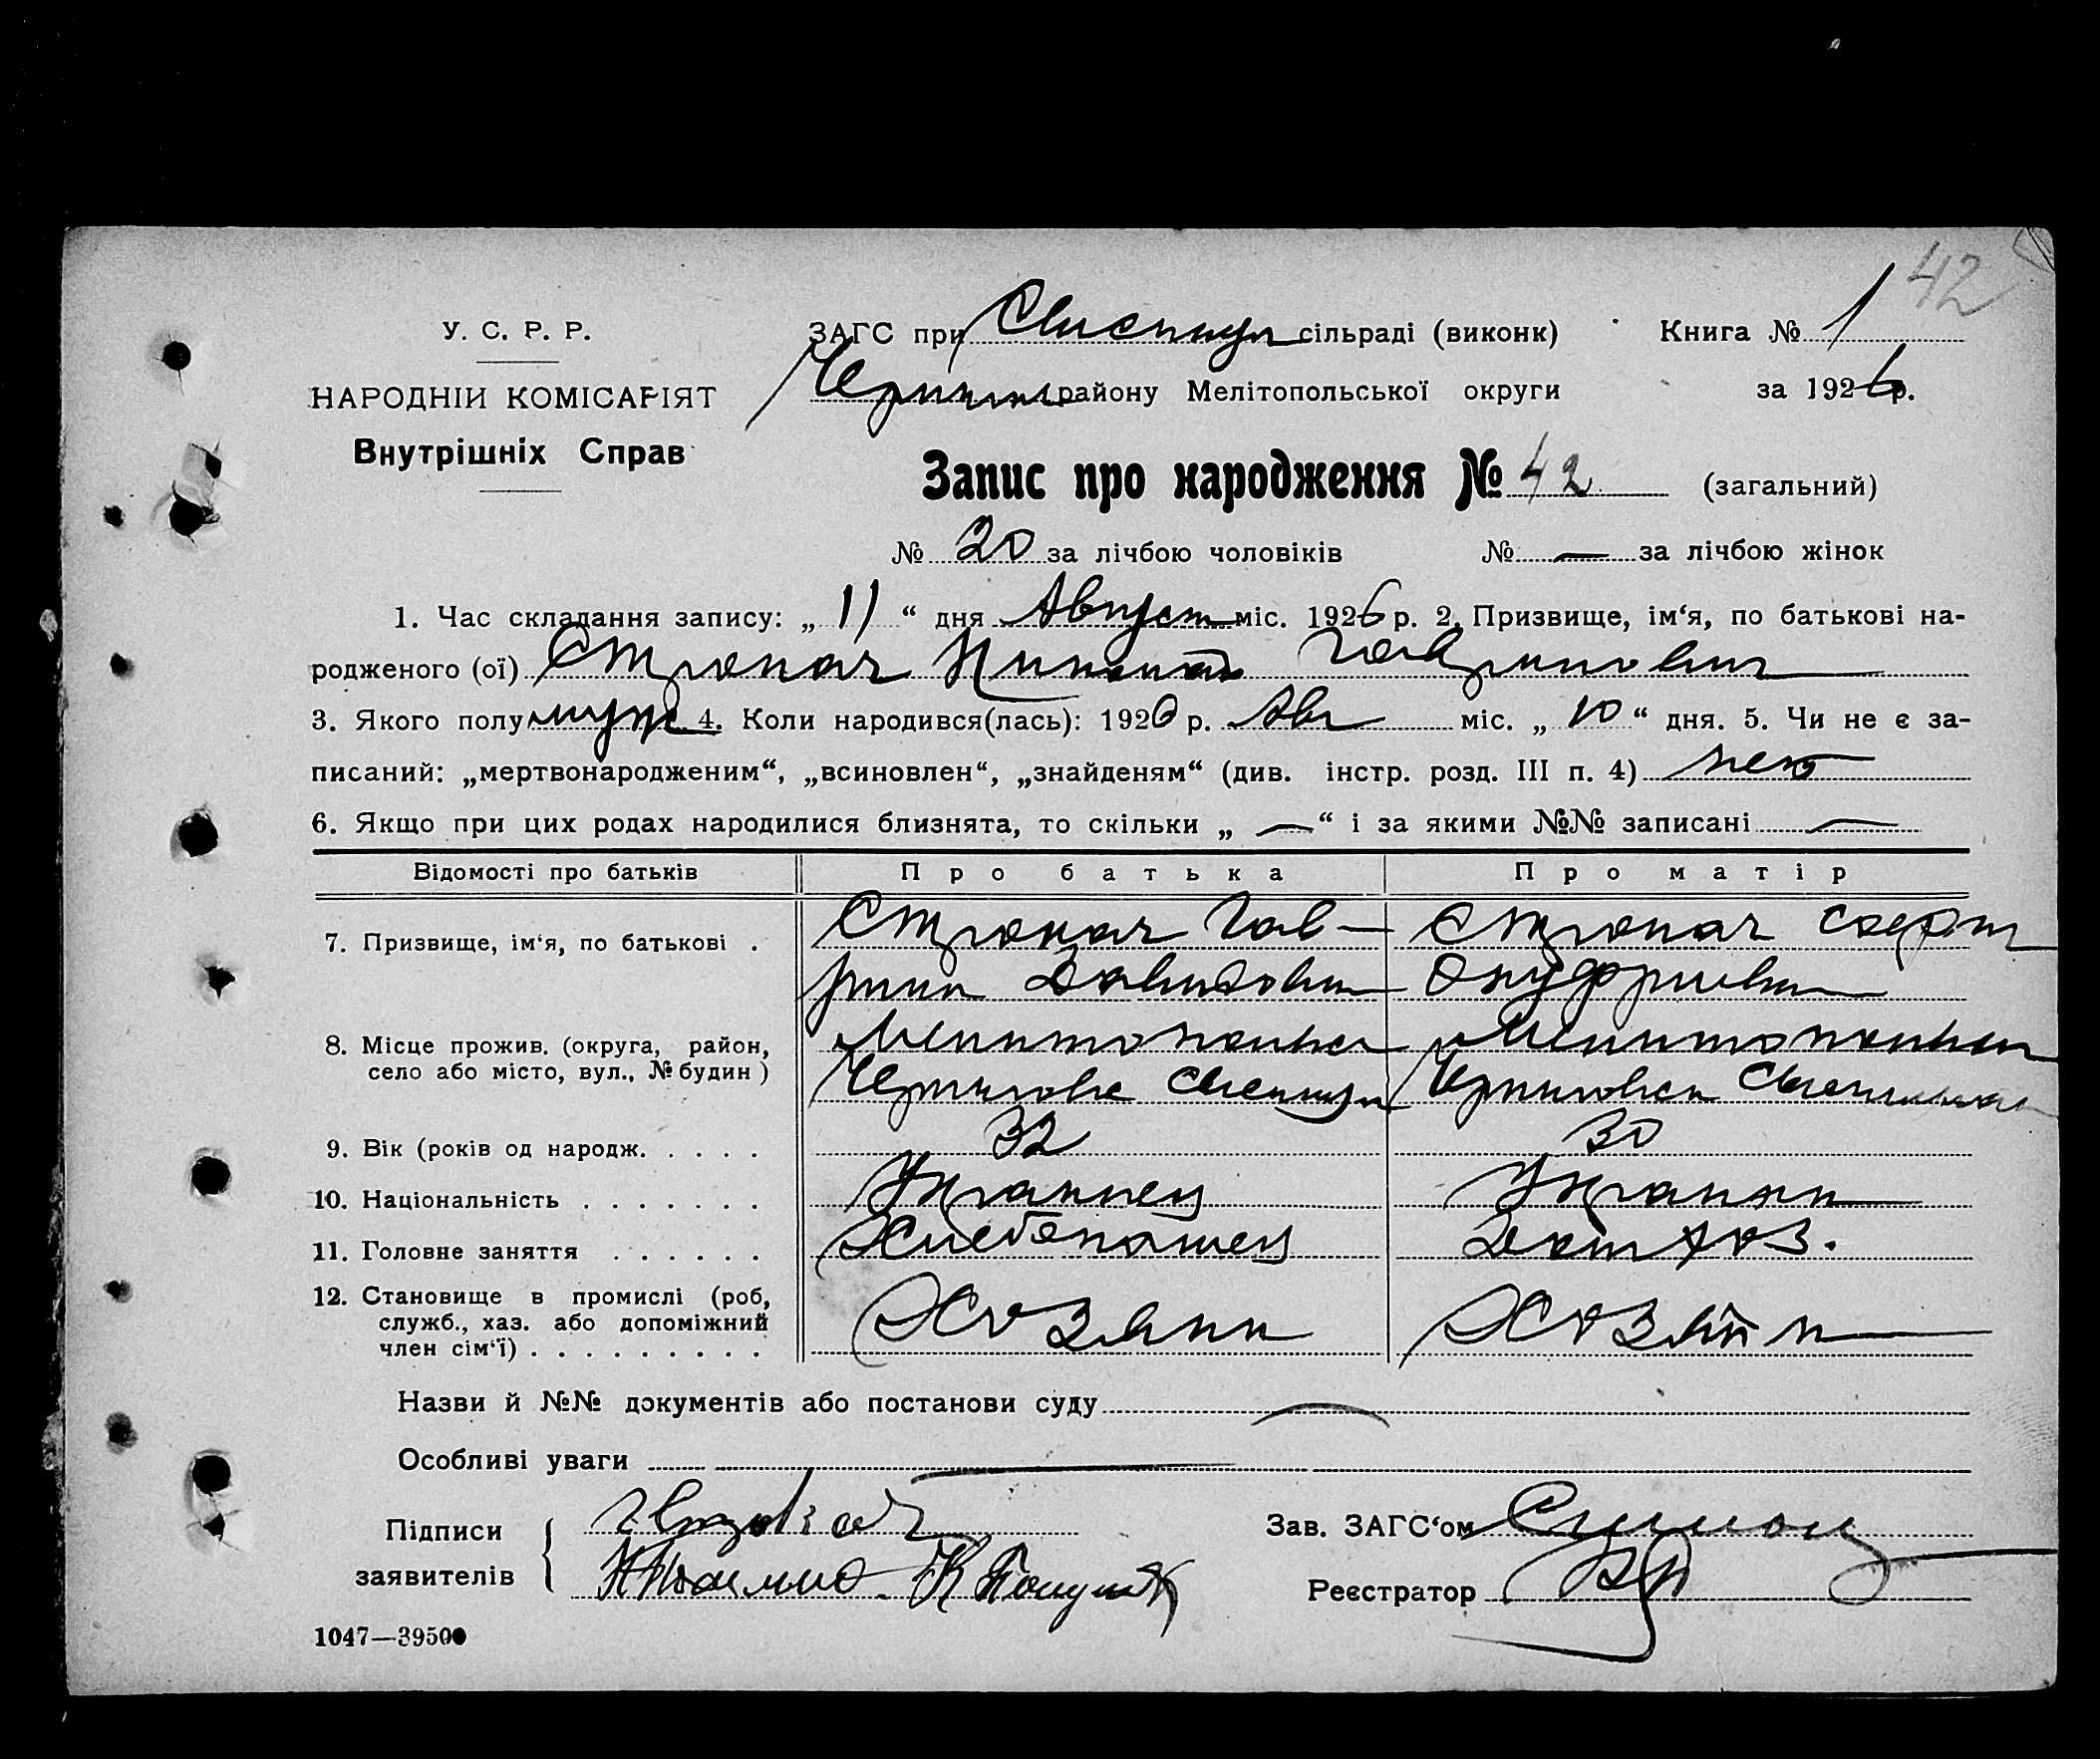 42
У. С. Р. Р.
НАРОДНІЙ КОМІСАРІЯТ
Внутрішніх Справ
ЗАГС при сільраді (виконк) Книга № 1
району Мелітопольської округи за 1926 р.
Запис про народження № 42 (загальний)
№ 20 за лічбою чоловіків № — за лічбою жінок
1. Час складання запису: „ 11 “ дня Август міс. 1926 р. 2. Призвище, ім‘я, по батькові на-
родженого (ої) Строкач Николай Гаврилович
3. Якого полу муж 4. Коли народився(лась): 1926 р. Авг міс. „ 10 “ дня. 5. Чи не є за-
писаний: „мертвонародженим“, „всиновлен“, „знайденям“ (див. інстр. розд. III п. 4) нет
6. Якщо при цих родах народилися близнята, то скільки „ — “ і за якими №№ записані —
Відомості про батьків Про батька Про матір
7. Призвище, ім‘я, по батькові . Строкач Гав- Строкач
риил Давидович Онуфриевна
8. Місце прожив. (округа, район, Мелитопольск Мелитопольск
село або місто, вул., № будин) Черниговск Черниговск
9. Вік (років од народж. . . . . 32 30
10. Національність . . . . . . . Украинец Украинка
11. Головне заняття . . . . . . Хлебопашец Дом хоз.
12. Становище в промислі (роб, Хозяин Хозяйка
служб., хаз. або допоміжний
член сім‘ї) . . . . . . . . .
Назви й №№ документів або постанови суду —
Особливі уваги —
Підписи
заявителів
Зав. ЗАГС‘ом
Реєстратор
1047—39500